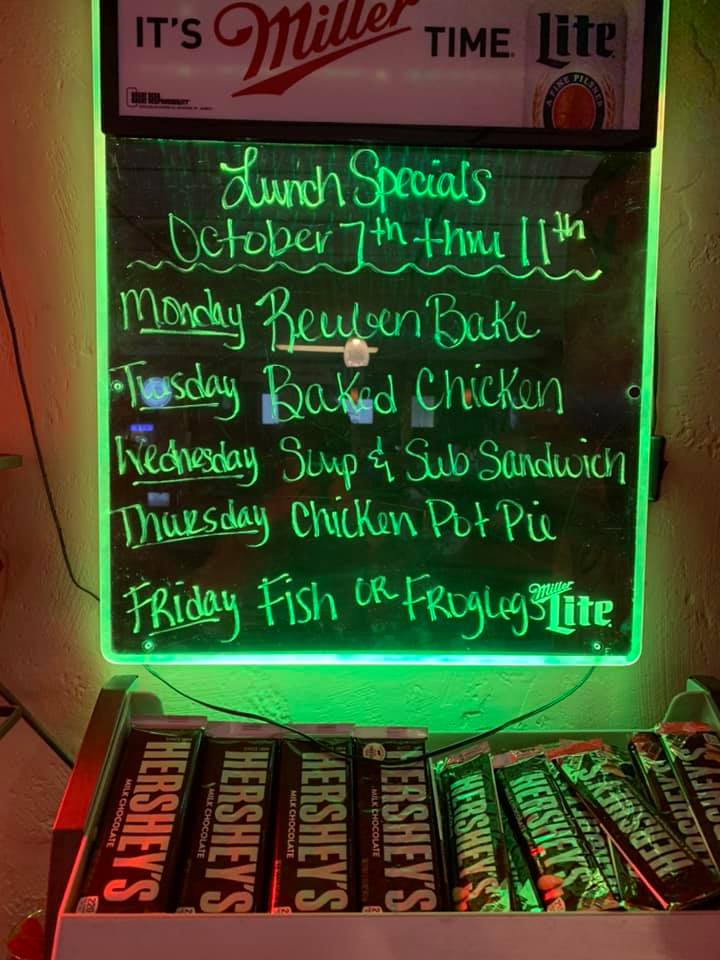 IT'S Miller TIME. Lite
A FINE PILSNER
Lunch Specials
October 7th thru 11th
Monday Reuben Bake
Tuesday Baked Chicken
Wednesday Soup & Sub Sandwich
Thursday Chicken Pot Pie
Friday Fish OR Froglegs
Miller Lite
HERSHEY'S MILK CHOCOLATE
HERSHEY'S MILK CHOCOLATE
HERSHEY'S MILK CHOCOLATE
HERSHEY'S MILK CHOCOLATE
HERSHEY'S
HERSHEY'S
HERSHEY'S
HERSHEY'S